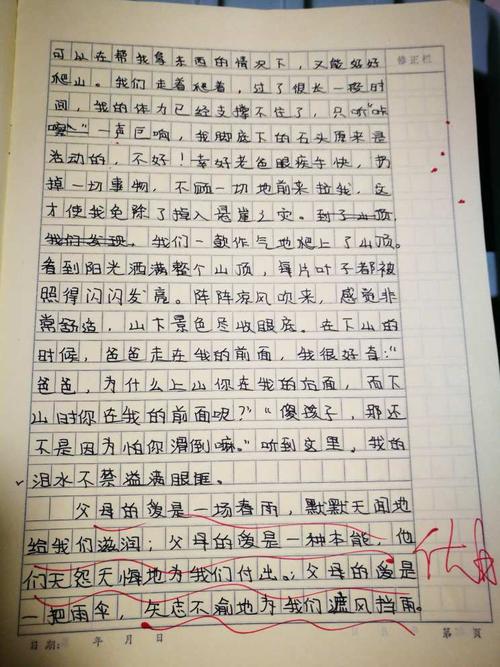 可以在帮我拿东西的情况下,又能好好 修正栏
爬山。我们走着爬着,过了很长一段时
间,我的体力已经支撑不住了,只听“咔
嚓”一声巨响,我脚底下的石头原来是
活动的,不好!幸好老爸眼疾手快,扔
掉一切事物,不顾一切地前来拉我,这
才使我免除了掉入悬崖之灾。到了山顶,
我们发现,我们一鼓作气地爬上了山顶。
看到阳光洒满整个山顶,每片叶子都被
照得闪闪发亮。阵阵凉风吹来,感觉非
常舒适,山下景色尽收眼底。在下山的
时候,爸爸走在我的前面,我很好奇:“
爸爸,为什么上山你在我的后面,而下
山时你在我的前面呢?”“傻孩子,那还
不是因为怕你滑倒嘛。”听到这里,我的
泪水不禁溢满眼眶。
父母的爱是一场春雨,默默无闻地
给我们滋润;父母的爱是一种本能,他
们无怨无悔地为我们付出。;父母的爱是
一把雨伞,矢志不渝地为我们遮风挡雨。
日期: 年 月 日 第 页